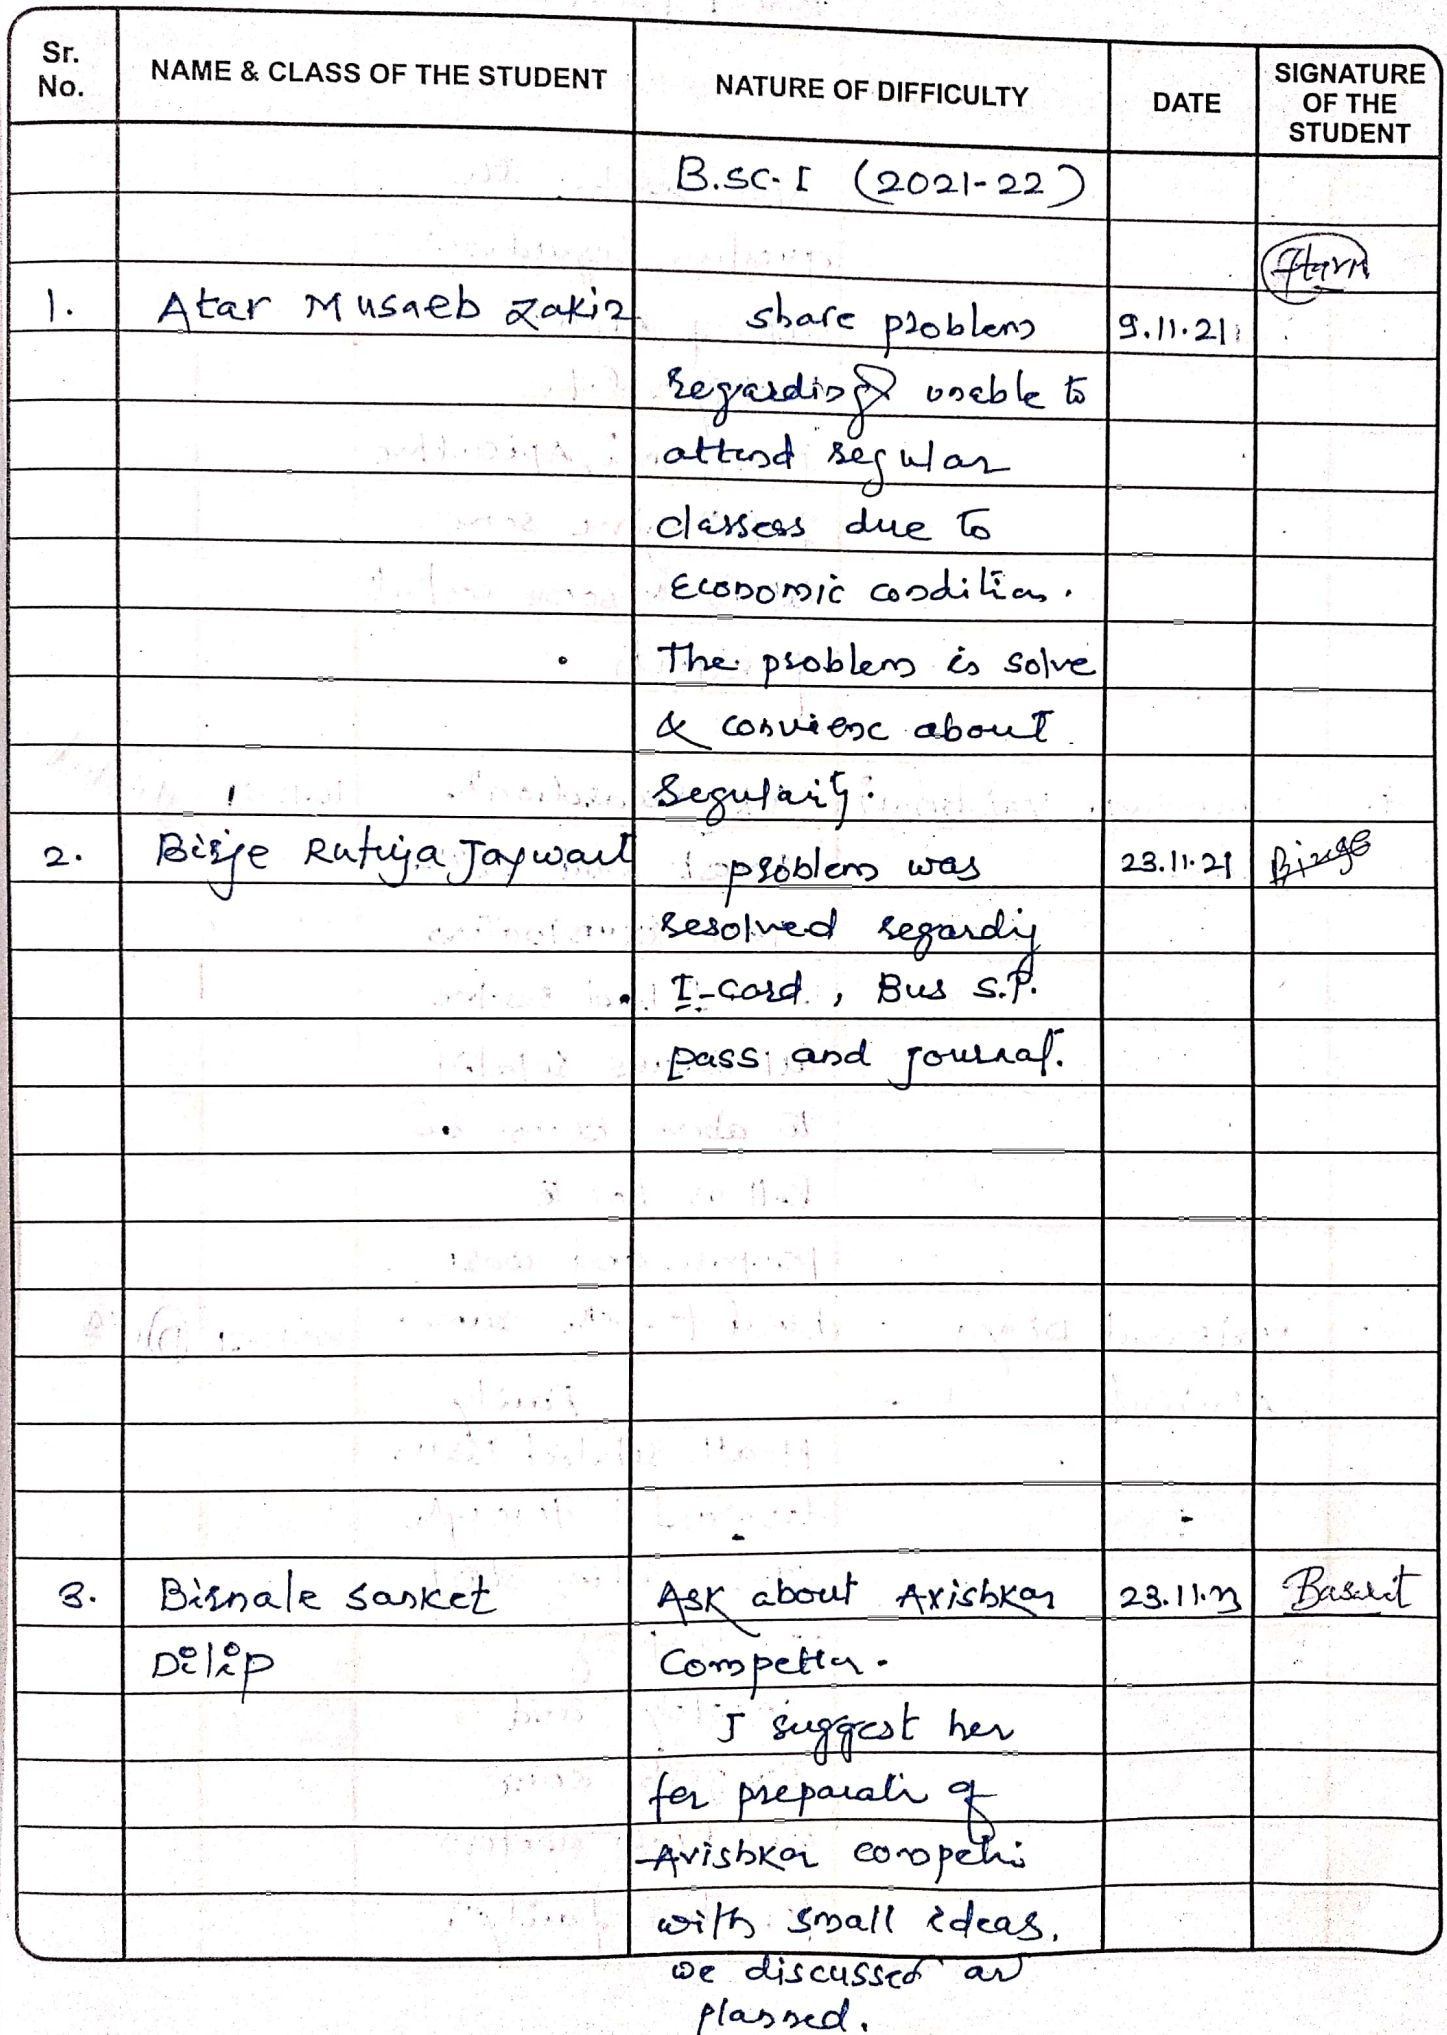 Sr. No. NAME & CLASS OF THE STUDENT NATURE OF DIFFICULTY DATE SIGNATURE OF THE STUDENT
B.sc-I (2021-22)
1. Atar Musaeb Zakir share problem 9.11.21
regarding unable to
attend regular
classess due to
Economic condition.
The problem is solve
& convienc about
regularity.
2. Birje Rutuja Jaywant problem was 23.11.21 Birge
resolved regarding
I-card, Bus s.P.
pass and journal.
3. Birnale sanket Ask about Avishkar 23.11.21
Dilip Compettn.
I suggest her
for preparati of
Avishkar competi
with small ideas.
we discussed an
planned.